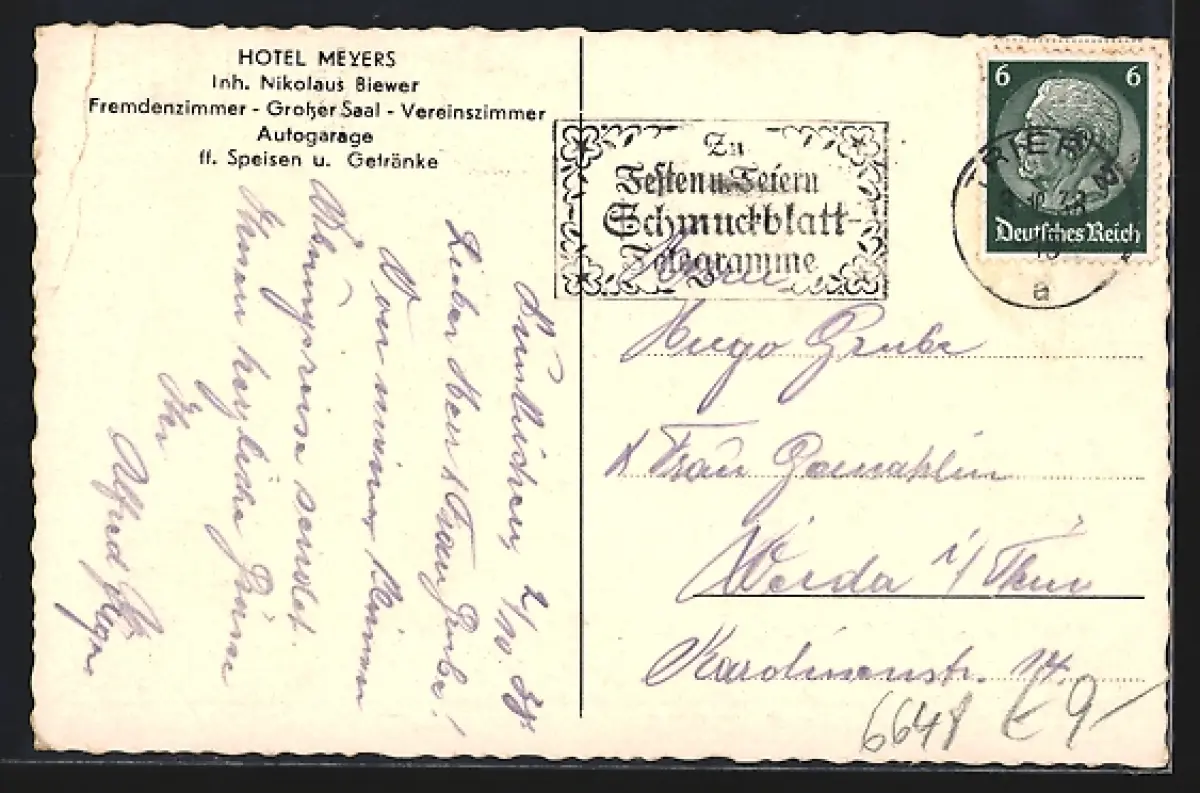 HOTEL MEYERS
Inh. Nikolaus Biewer
Fremdenzimmer - Großer Saal - Vereinszimmer
Autogarage
ff. Speisen u. Getränke
2/10. 38
Lieber Herr & Frau Grube!
Von meiner
sendet
Ihnen herzliche Grüsse
Ihr
Alfred
Zu
Festen u. Feiern
Schmuckblatt-
Telegramme
6 6
Deutsches Reich
TRIER 2
a
Herrn
Hugo Grube
& Frau Gemahlin
Weida i/Thür
Karolinenstr. 14.
6648 € 9-